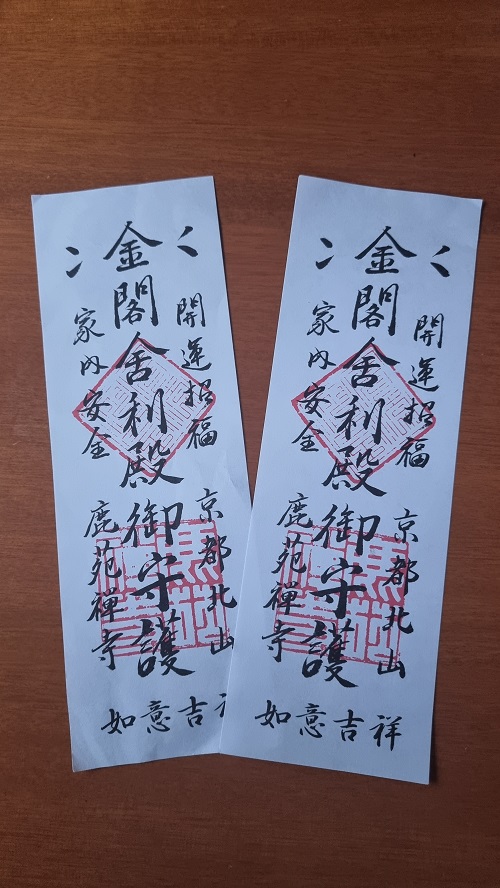 金閣舎利殿御守護
開運招福
家内安全
京都北山
鹿苑禅寺
如意吉祥
金閣舎利殿御守護
開運招福
家内安全
京都北山
鹿苑禅寺
如意吉祥